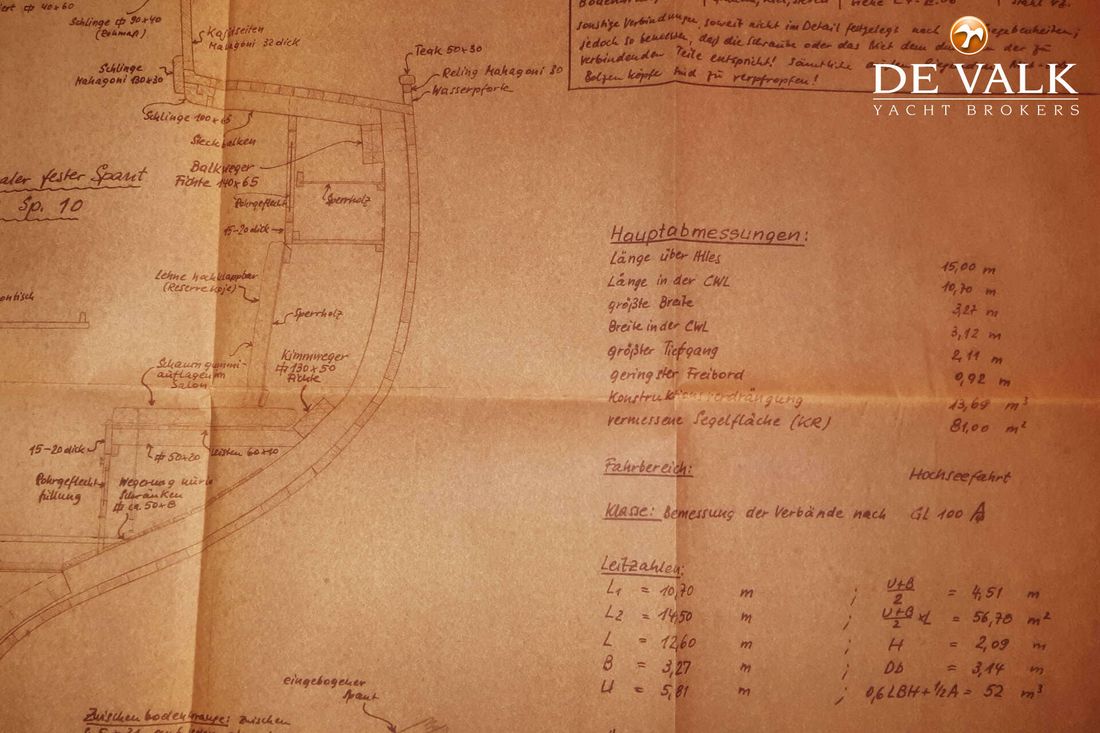 40x60
Schlinge ⌀ 90x40
(Rohmaß)
Kajütseiten
Mahagoni 32 dick
Schlinge
Mahagoni 130x30
Schlinge 100x65
Steckbalken
Balkweger
Fichte 140x65
15-20 dick
Lehne hochklappbar
(Reservekoje)
Sperrholz
Sperrholz
Teak 50x30
Reling Mahagoni 30
Wasserpforte
fester Spant
Sp. 10
Schaumgummi-
auflage im
Salon
Kimmweger
⌀ 130x50
Fichte
15-20 dick
50x20
Leisten 60x10
Rohrgeflecht
füllung
Wegerung nur in
Schränken
ca. 50x8
eingebogener
Spant
sonstige Verbindungen soweit nicht im Detail festgelegt nach
jedoch so bemessen, daß die Schraube oder das Niet dem der zu
verbindenden Teile entspricht! Sämtliche
Bolzenköpfe sind zu verpfropfen!
DE VALK
YACHT BROKERS
Hauptabmessungen:
Länge über Alles 15,00 m
Länge in der CWL 10,70 m
größte Breite 3,27 m
Breite in der CWL 3,12 m
größter Tiefgang 2,11 m
geringster Freibord 0,92 m
Konstruktionsverdrängung 13,69 m³
vermessene Segelfläche (KR) 81,00 m²
Fahrbereich: Hochseefahrt
Klasse: Bemessung der Verbände nach GL 100 A
Leitzahlen:
L1 = 10,70 m ; U+B/2 = 4,51 m
L2 = 14,50 m ; U+B/2 x L = 56,78 m²
L = 12,60 m ; H = 2,09 m
B = 3,27 m ; Db = 3,14 m
U = 5,81 m ; 0,6LBH + ½A = 52 m³